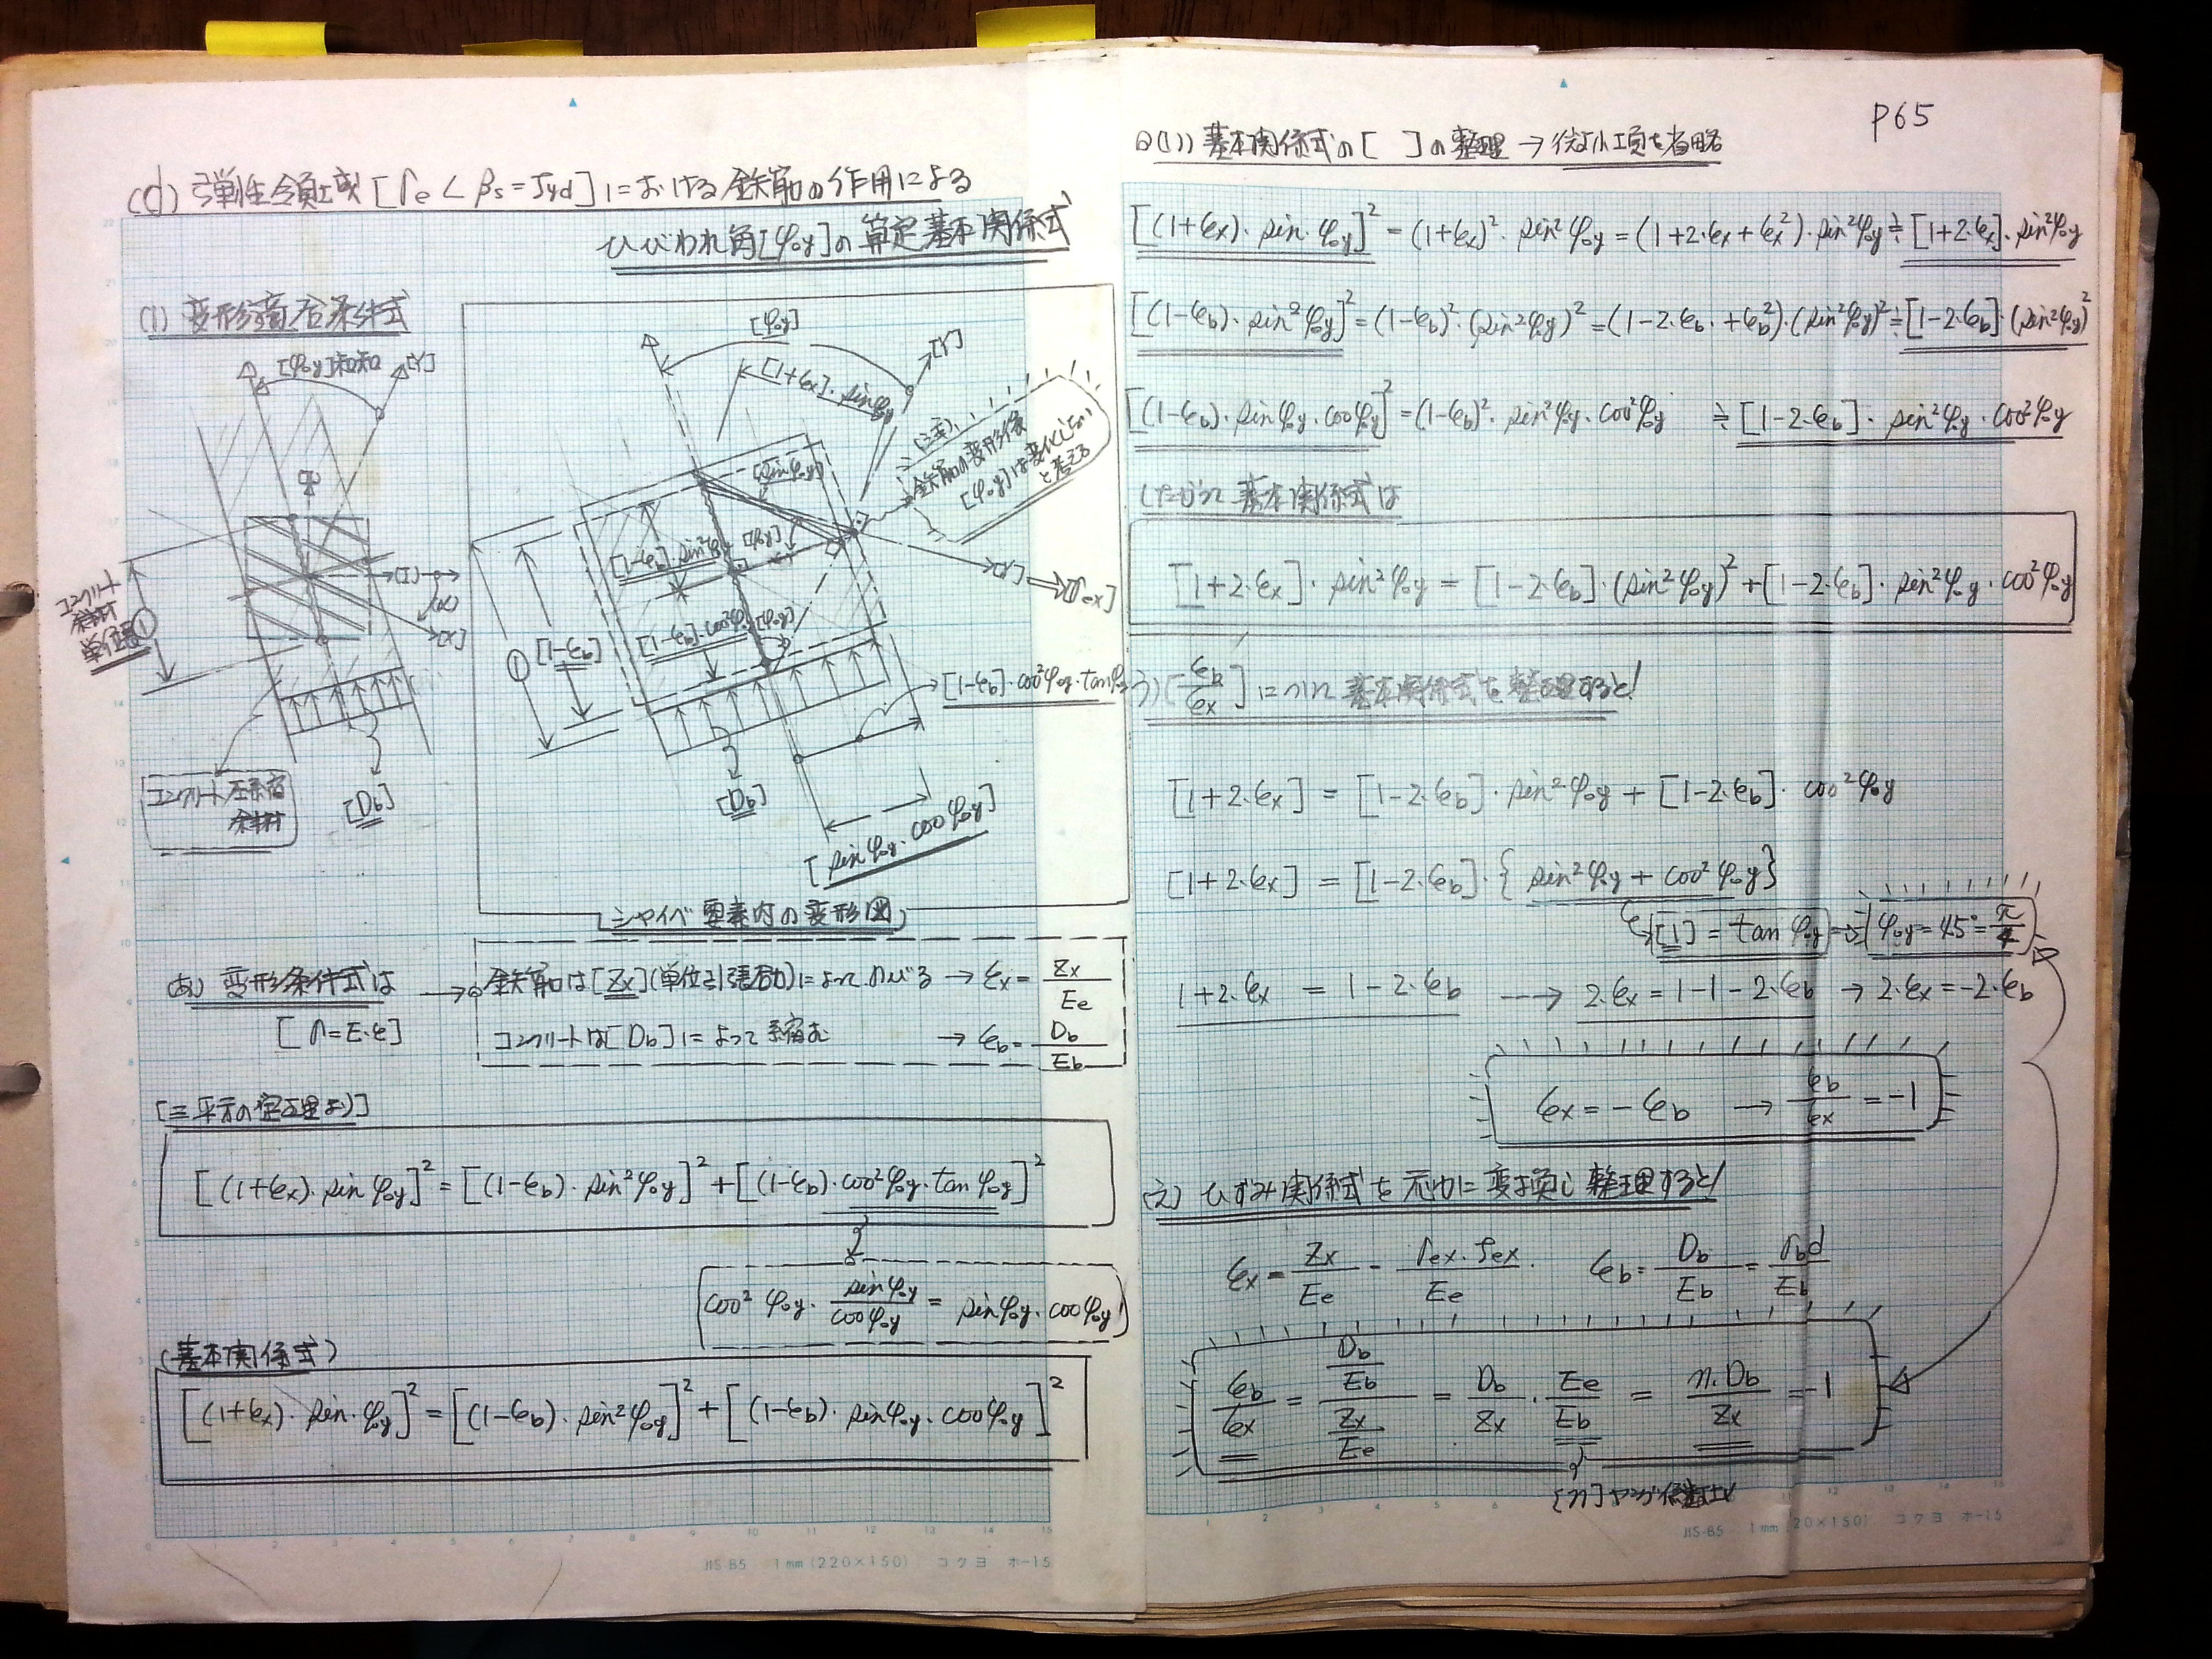 (d) 弾性領域 [σe < βs = σyd] における鉄筋の作用による
ひびわれ角[φoy]の算定基本関係式
(1) 変形適合条件式
[φoy]
[Y]
[1+εx]・sinφoy
[sinφoy]
(注意)
鉄筋の変形後
[φoy]は変化しない
と考える
[1-εb]・sin²φoy
[φoy]
[1-εb]
[1-εb]・cos²φoy
[φoy]
[X]
[σex]
①
[1-εb]・cos²φoy・tanφoy
[Db]
[sinφoy・cosφoy]
シャイベ要素内の変形図
[φoy]
[Y]
[X]
コンクリート
単位長
①
コンクリート圧縮
斜材
[Db]
(あ) 変形条件式は
[σ=E・ε]
鉄筋は[Zx](単位引張力)によってのびる → εx = Zx/Ee
コンクリートは[Db]によって縮む → εb = Db/Eb
[三平方の定理より]
[(1+εx)・sinφoy]² = [(1-εb)・sin²φoy]² + [(1-εb)・cos²φoy・tanφoy]²
cos²φoy・sinφoy/cosφoy = sinφoy・cosφoy
(基本関係式)
[(1+εx)・sin・φoy]² = [(1-εb)・sin²φoy]² + [(1-εb)・sinφoy・cosφoy]²
P65
基本関係式の[ ]の整理 → 微小項を省略
[(1+εx)・sin・φoy]² = (1+εx)²・sin²φoy = (1+2・εx+εx²)・sin²φoy ≒ [1+2・εx]・sin²φoy
[(1-εb)・sin²φoy]² = (1-εb)²・(sin²φoy)² = (1-2・εb・+εb²)・(sin²φoy)² ≒ [1-2・εb]・(sin²φoy)²
[(1-εb)・sinφoy・cosφoy]² = (1-εb)²・sin²φoy・cos²φoy ≒ [1-2・εb]・sin²φoy・cos²φoy
したがって基本関係式は
[1+2・εx]・sin²φoy = [1-2・εb]・(sin²φoy)² + [1-2・εb]・sin²φoy・cos²φoy
う) [εb/εx]について基本関係式を整理すると!
[1+2・εx] = [1-2・εb]・sin²φoy + [1-2・εb]・cos²φoy
[1+2・εx] = [1-2・εb]・{sin²φoy + cos²φoy}
[1] = tanφoy ⇒ φoy = 45° = π/4
1+2・εx = 1-2・εb → 2・εx = 1-1-2・εb → 2・εx = -2・εb
εx = -εb → εb/εx = -1
(え) ひずみ関係式を応力に変換し整理すると!
εx = Zx/Ee = σex・ρex/Ee・ εb = Db/Eb = σbd/Eb
εb/εx = (Db/Eb)/(Zx/Ee) = Db/Zx・Ee/Eb = n・Db/Zx = -1
[n] ヤング係数比
JIS-B5 1mm (220×150) コクヨ ホ-15
JIS-B5 1mm (220×150) コクヨ ホ-15